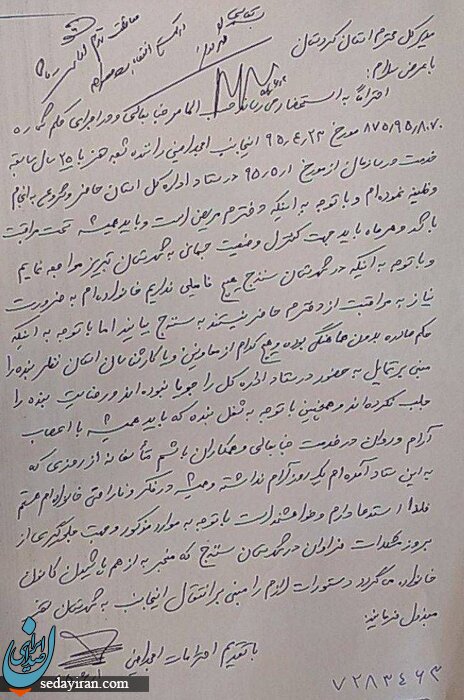 مدیر کل محترم استان کردستان
با عرض سلام؛
احتراماً به استحضار می رساند حسب الامر جنابعالی و در اجرای حکم شماره
۸۷۵/۹۵/۸۰۷۰ مورخ ۹۵،۴،۲۳ اینجانب راننده شعبه سقز با ۲۵ سال سابقه
خدمت در سازمان از مورخ ۹۵،۵،۱ در ستاد اداره کل استان حاضر و شروع به انجام
وظیفه نموده ام و با توجه به اینکه دخترم مریض است و باید همیشه تحت مراقبت
باشد و هر ماه باید جهت کنترل وضعیت جسمانی به شهرستان تبریز مراجعه نمایم
و با توجه به اینکه در شهرستان سنندج هیچ فامیلی نداریم خانواده ام به ضرورت
نیاز به مراقبت از دخترم حاضر نیستند به سنندج بیایند اما با توجه به اینکه
حکم صادره بدون هماهنگی بوده و هیچ کدام از معاونین و یا کارشناسان استان نظر بنده را
مبنی بر تمایل به حضور در ستاد اداره کل را جویا نبوده اند و رضایت بنده را
جلب نکرده اند و همچنین با توجه به شغل بنده که باید همیشه با اعصاب
آرام و روان در خدمت جنابعالی و همکاران باشم متأسفانه از روزی که
به این ستاد آمده ام یک روز آرام نداشته و همیشه در فکر و ناراحتی خانواده ام هستم
لذا استدعا دارم و خواهشمند است با توجه به موارد مذکور و جهت جلوگیری از
بروز مشکلات فراوان در شهرستان سنندج که منجر به از هم پاشیدن کانون
خانواده می گردد دستورات لازم را مبنی بر انتقال اینجانب به شهرستان سقز
مبذول فرمایید.
با تقدیم احترامات
۷۲۸۳۴۶۳
صدای ایران
sedayiran.com